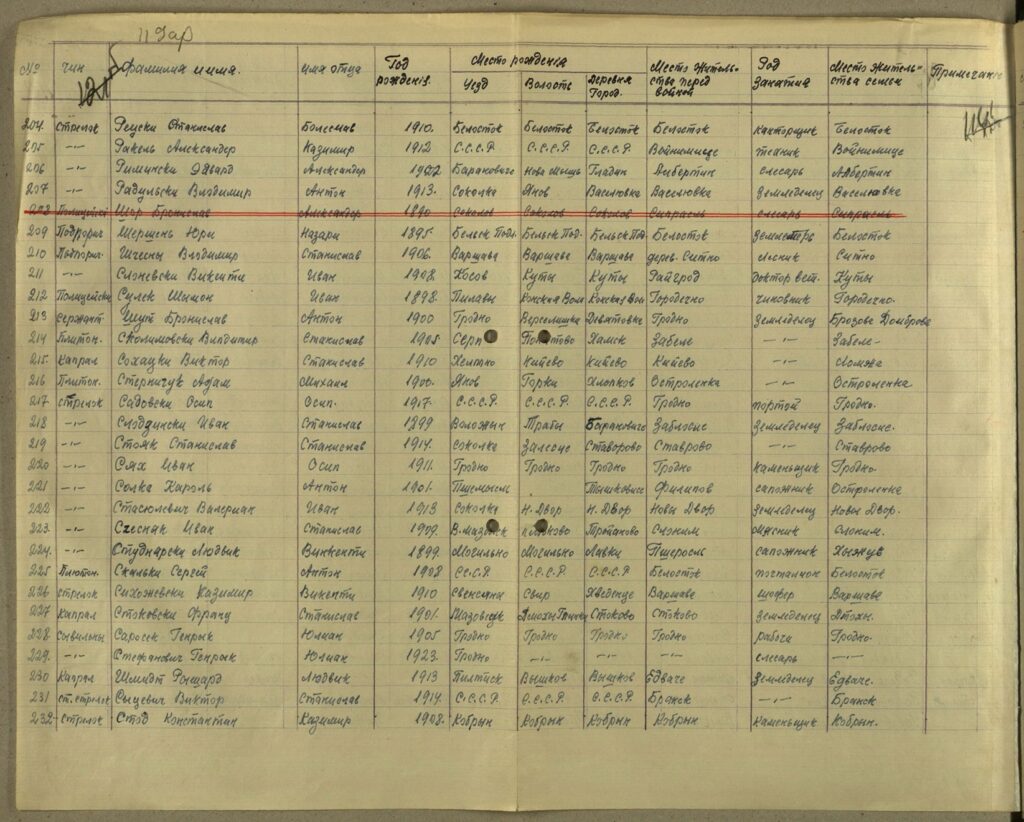 11 Гар
№ чин фамилия и имя. имя отца Год рождения. Место рождения Место житель-ства перед войной Род занятия Место житель-ства семьи Примечание
Уезд Волость Деревня Город.
204 стрелок Рециски Станислав Болеслав 1910. Белосток Белосток Белосток Белосток канторщик Белосток
205 -"- Ракель Александер Казимир 1912 С.С.С.Р С.С.С.Р. С.С.С.Р Войнимице техник Войнимице
206 -"- Римински Эдвард Александер Барановиче Нова Мышь Альбертин слесарь Альбертин
207 -"- Радильски Владимир Антон 1913. Соколка Янов Васлювка Васлювка земледелец Васлювка
208 Полицейски Шор Бронислав Александер 1890 Соколов Соколов Соколов слесарь
209 Подпорш Шершень Юри Назари 1895. Бельск Подл. Бельск Под. Бельск Под. Белосток Белосток
210 Подпорш. Щчены Владимир Станислав 1906. Варшава Варшава Варшава дерев. Ситно лесник Ситно
211 -"- Слоневски Викенти Иван 1908 Косов Куты Куты Райгрод доктор вет. Куты
212 Полицейски Сулек Шимон Иван 1898. Пилавы Конская Вол Конская Вол Городечно чиновник Городечно.
213 Сержант. Шут Бронислав Антон 1900 Гродно Верселишки Девятовка Гродно земледелец Брозова Домброва
214 Плитон. Сколимовски Владимир Станислав 1905 Серп Хамск Забеле -"- Забеле-
215. Капрал Сохацки Виктор Станислав 1910 Хелпно Китево Китево Китево -"- Ломжа
216 Плитон. Стерничук Адам Михаил 1900. Янов Горки Хлопков Остроленка -"- Остроленка
217 стрелок Садовски Осип Осип. 1917. С.С.С.Р С.С.С.Р. С.С.С.Р. Гродно портой Гродно.
218 -"- Слодзински Иван Станислав 1899 Воложын Трабы Барановиче Заблосце земледелец Заблосце.
219 -"- Стояк Станислав Станислав 1914. Соколка Залесце Ставрово Ставрово -"- Ставрово
220 -"- Сях Иван Осип 1911. Гродно Гродно Гродно Гродно каменьщик Гродно.
221 -"- Солка Кароль Антон 1901. Пшемысль Пышковице Филипов сапожник Остроленка
222 -"- Стасюлевич Валериан Иван 1913 Соколка Н. Двор Н. Двор Новы Двор земледелец Новы Двор.
223. -"- Счесняк Иван Станислав 1909. Слоним мясник Слоним.
224. -"- Студнарски Людвик Винкенти 1899. Могильно Могильно Лавки Пшеросль сапожник
225 Плютон. Скальки Сергей Антон 1908 СС.С.Р. С.С.С.Р. С.С.С.Р Белосток почтальион Белосток
226 стрелок Сихожевски Казимир Викенти 1910 Свенсяны Свир Хведзеце Варшава шофер Варшава
227 Капрал Стоковски Франц Станислав 1901. Мазовецк Стоково Стоково земледелец
228 Сывильны Саросек Генрык Юлиан 1905 Гродно Гродно Гродно Гродно работи Гродно.
229. -"- Стефанович Генрык Юлиан 1923. Гродно -"- -"- -"- слесарь -"-
230 Капрал Шмидт Рышард Людвик 1913 Пултиск Вышков Вышков Едваче земледелец Едваче.
231 ст. стрелок Сыцевич Виктор Станислав 1914. С.С.С.Р С.С.С.Р. С.С.С.Р. Брянск -"- Брянск
232 Стрелок Стод Константин Казимир 1908. Кобрын Кобрын Кобрын Кобрын каменьщик Кобрын.